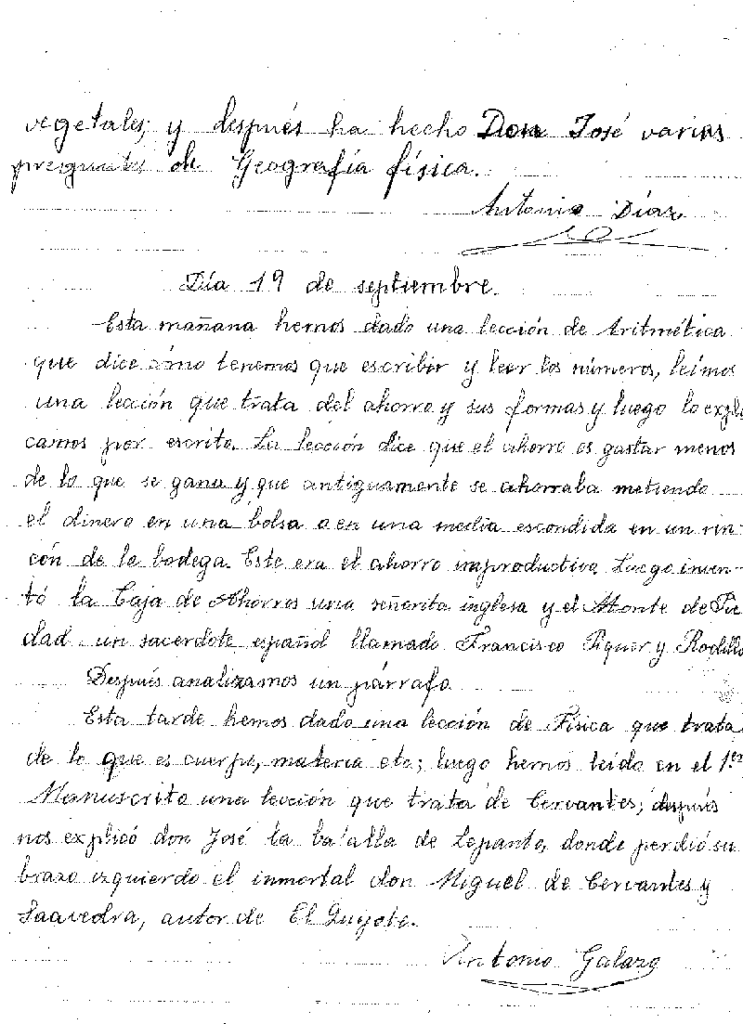 vegetales; y después ha hecho Don José varias
preguntas de Geografía física.
Antonio Díaz
Día 19 de septiembre.
Esta mañana hemos dado una lección de Aritmética
que dice cómo tenemos que escribir y leer los números, leímos
una lección que trata del ahorro y sus formas y luego lo expli
camos por escrito. La lección dice que el ahorro es gastar menos
de lo que se gana y que antiguamente se ahorraba metiendo
el dinero en una bolsa o en una media escondida en un rin-
cón de la bodega. Este era el ahorro improductivo. Luego inven-
tó la Caja de Ahorros una señorita inglesa y el Monte de Pie
dad un sacerdote español llamado Francisco Piquer y Rodilla
Después analizamos un párrafo.
Esta tarde hemos dado una lección de Física que trata
de lo que es cuerpo, materia etc; luego hemos leído en el 1.er
Manuscrito una lección que trata de Cervantes; después
nos explicó don José la batalla de Lepanto, donde perdió su
brazo izquierdo el inmortal don Miguel de Cervantes y
Saavedra, autor de El Quijote.
Antonio Galazo